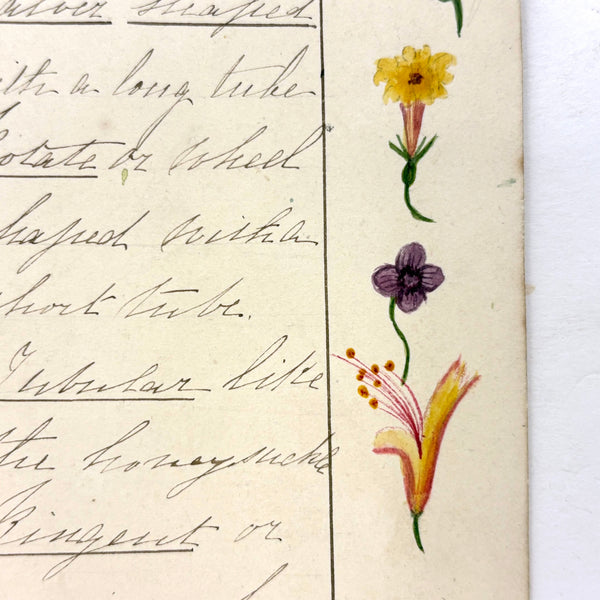 shaped
with a long tube
or wheel
shaped with a
short tube.
Tubular like
the honeysuckle
Ringent or